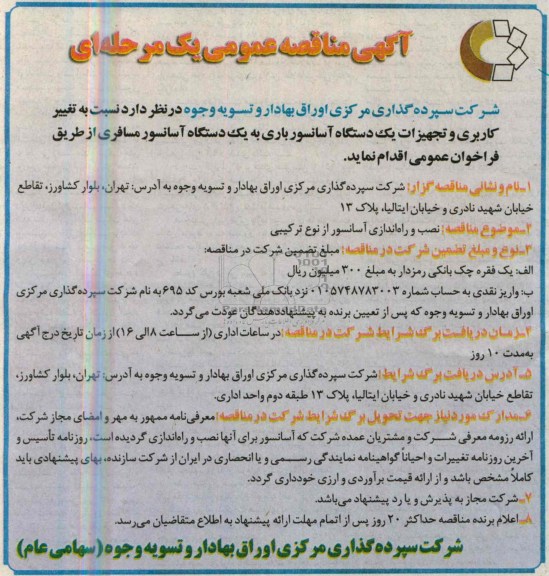 آگهی مناقصه عمومی یک مرحله‌ای
شرکت سپرده‌گذاری مرکزی اوراق بهادار و تسویه وجوه در نظر دارد نسبت به تغییر
کاربری و تجهیزات یک دستگاه آسانسور باری به یک دستگاه آسانسور مسافری از طریق
فراخوان عمومی اقدام نماید.
۱ـ نام و نشانی مناقصه گزار: شرکت سپرده‌گذاری مرکزی اوراق بهادار و تسویه وجوه به آدرس: تهران، بلوار کشاورز، تقاطع
خیابان شهید نادری و خیابان ایتالیا، پلاک ۱۳
۲ـ موضوع مناقصه: نصب و راه‌اندازی آسانسور از نوع ترکیبی
۳ـ نوع و مبلغ تضمین شرکت در مناقصه: مبلغ تضمین شرکت در مناقصه:
الف: یک فقره چک بانکی رمزدار به مبلغ ۳۰۰ میلیون ریال
ب: واریز نقدی به حساب شماره ۰۱۰۵۷۴۸۷۸۳۰۰۳ نزد بانک ملی شعبه بورس کد ۶۹۵ به نام شرکت سپرده‌گذاری مرکزی
اوراق بهادار و تسویه وجوه که پس از تعیین برنده به پیشنهاددهندگان عودت می‌گردد.
۴ـ زمان دریافت برگ شرایط شرکت در مناقصه: در ساعات اداری (از ساعت ۸ الی ۱۶) از زمان تاریخ درج آگهی
به‌مدت ۱۰ روز
۵ـ آدرس دریافت برگ شرایط: شرکت سپرده‌گذاری مرکزی اوراق بهادار و تسویه وجوه به آدرس: تهران، بلوار کشاورز،
تقاطع خیابان شهید نادری و خیابان ایتالیا، پلاک ۱۳ طبقه دوم واحد اداری.
۶ـ مدارک مورد نیاز جهت تحویل برگ شرایط شرکت در مناقصه: معرفی‌نامه ممهور به مهر و امضای مجاز شرکت،
ارائه رزومه معرفی شرکت و مشتریان عمده شرکت که آسانسور برای آنها نصب و راه‌اندازی گردیده است، روزنامه تأسیس و
آخرین روزنامه تغییرات و احیاناً گواهینامه نمایندگی رسمی و یا انحصاری در ایران از شرکت سازنده، بهای پیشنهادی باید
کاملاً مشخص باشد و از ارائه قیمت برآوردی و ارزی خودداری گردد.
۷ـ شرکت مجاز به پذیرش و یا رد پیشنهاد می‌باشد.
۸ـ اعلام برنده مناقصه حداکثر ۲۰ روز پس از اتمام مهلت ارائه پیشنهاد به اطلاع متقاضیان می‌رسد.
شرکت سپرده گذاری مرکزی اوراق بهادار و تسویه وجوه (سهامی عام)